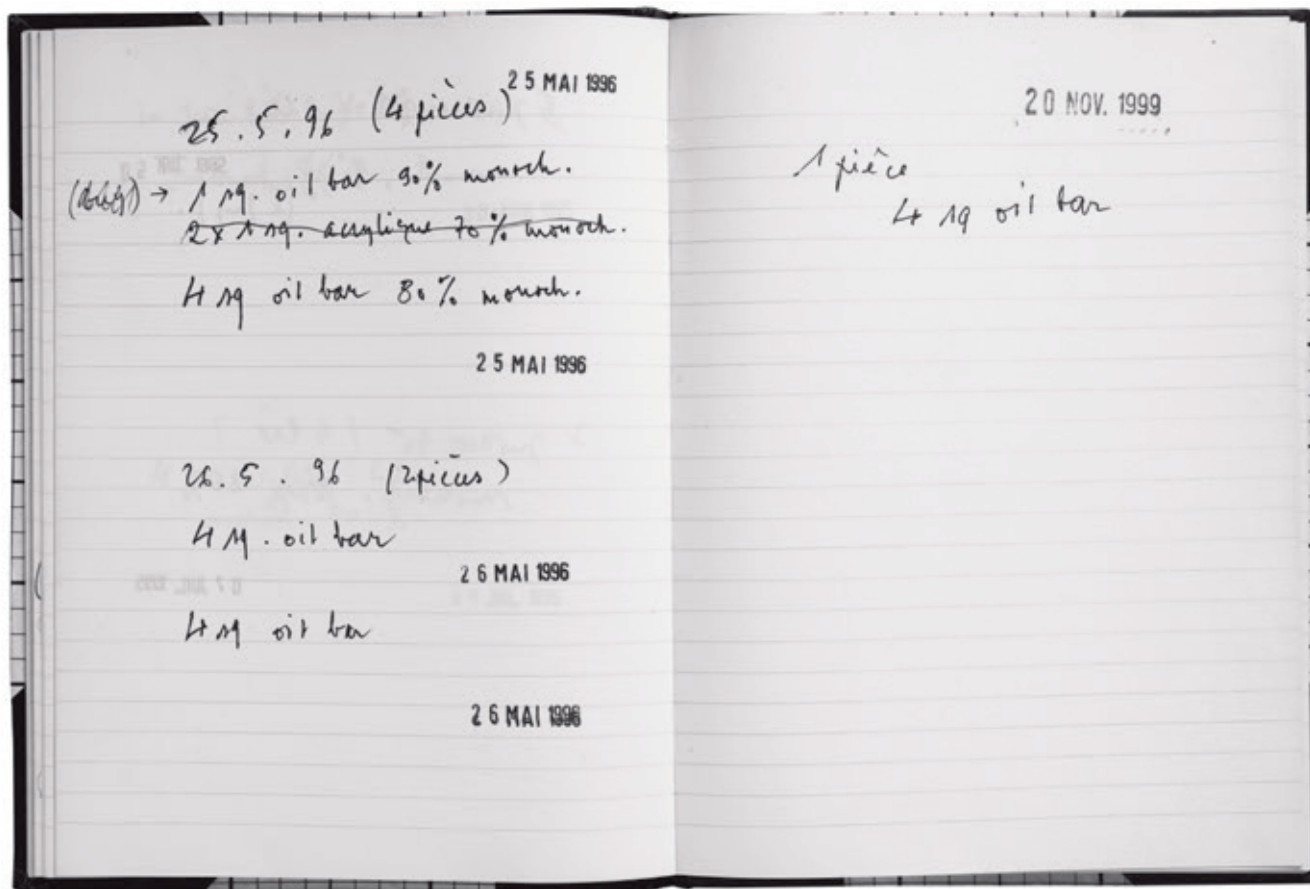 25 MAI 1996
25.5.96 (4 pièces)
→ 1 sq. oil bar 90% monoch.
2x 1 sq. acrylique 70% monoch.
4 sq oil bar 80% monoch.
25 MAI 1996
26.5.96 (2 pièces)
4 sq. oil bar
26 MAI 1996
4 sq oil bar
26 MAI 1996
20 NOV. 1999
1 pièce
4 sq oil bar